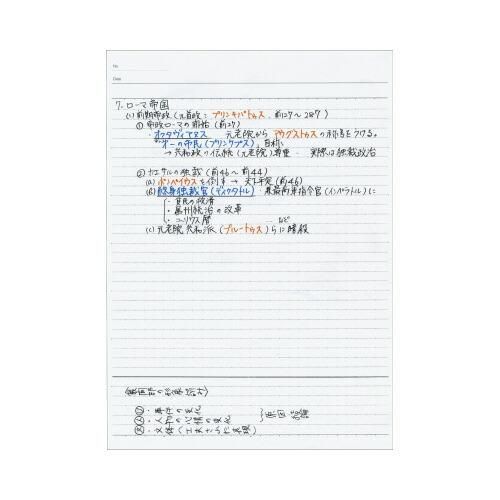 No.
Date
7. ローマ帝国
(1) 前期帝政(元首政:プリンキパトゥス、前27〜287)
① 帝政ローマの開始(前27)
・オクタヴィアヌス 元老院からアウグストゥスの称号をうける。
・"第一の市民(プリンケプス)"自称
→ 共和政の伝統(元老院)尊重 実際は独裁政治
② カエサルの独裁(前46〜前44)
(a) ポンペイウスを倒す → 天下平定(前46)
(b) 終身独裁官(ディクタトル)・兼最高軍指令官(インペラトル)に
・貧民の救済
・属州統治の改革
・ユリウス暦 … など
(c) 元老院共和派(ブルートゥス)らに暗殺
①・事件の変化
②・人物の心情の変化
③・文体(工夫された表現)